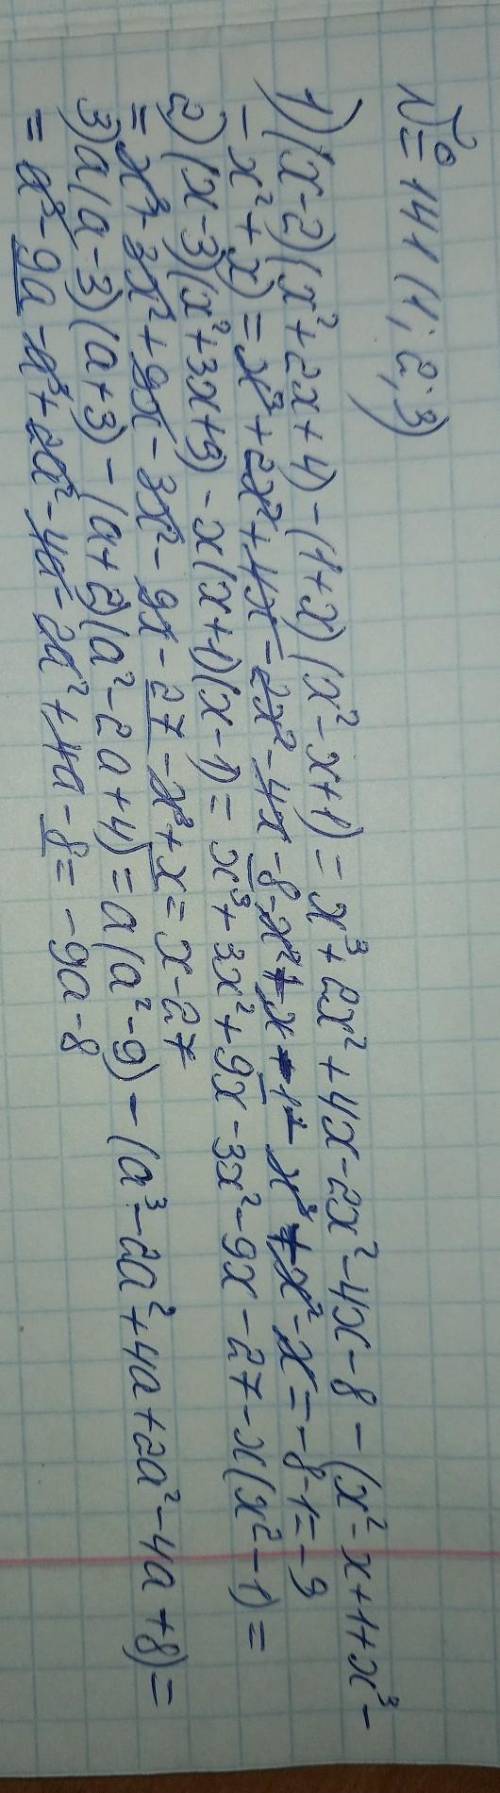 № = 141 (1; 2; 3)
1) (x-2)(x²+2x+4)-(1+x)(x²-x+1)= x³+2x²+4x-2x²-4x-8-(x²-x+1+x³-
-x²+x)=x³+2x²+4x-2x²-4x-8-x²+x-1-x³+x²-x=-8-1=-9
2) (x-3)(x²+3x+9)-x(x+1)(x-1)= x³+3x²+9x-3x²-9x-27-x(x²-1)=
=x³+3x²+9x-3x²-9x-27-x³+x=x-27
3) a(a-3)(a+3)-(a+2)(a²-2a+4)=a(a²-9)-(a³-2a²+4a+2a²-4a+8)=
=a³-9a-a³+2a²-4a-2a²+4a-8=-9a-8